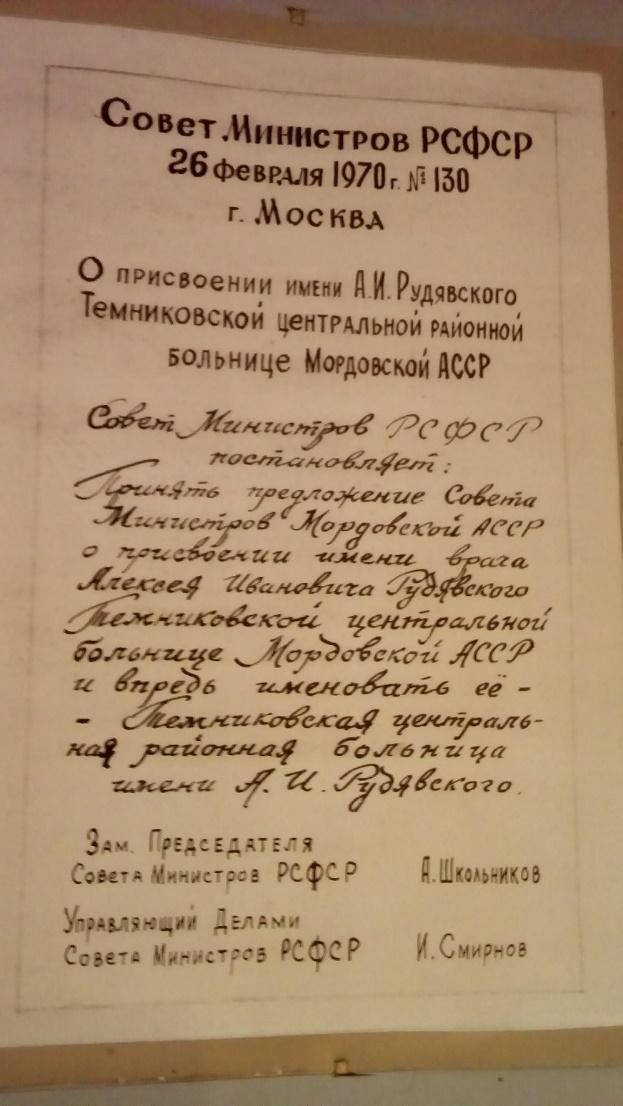 Совет Министров РСФСР
26 февраля 1970 г. № 130
г. Москва
О присвоении имени А.И. Рудявского
Темниковской центральной районной
больнице Мордовской АССР
Совет Министров РСФСР
постановляет:
Принять предложение Совета
Министров Мордовской АССР
о присвоении имени врача
Алексея Ивановича Рудявского
Темниковской центральной
больнице Мордовской АССР
и впредь именовать её -
- Темниковская централь-
ная районная больница
имени А. И. Рудявского.
Зам. Председателя
Совета Министров РСФСР А. Школьников
Управляющий Делами
Совета Министров РСФСР И. Смирнов